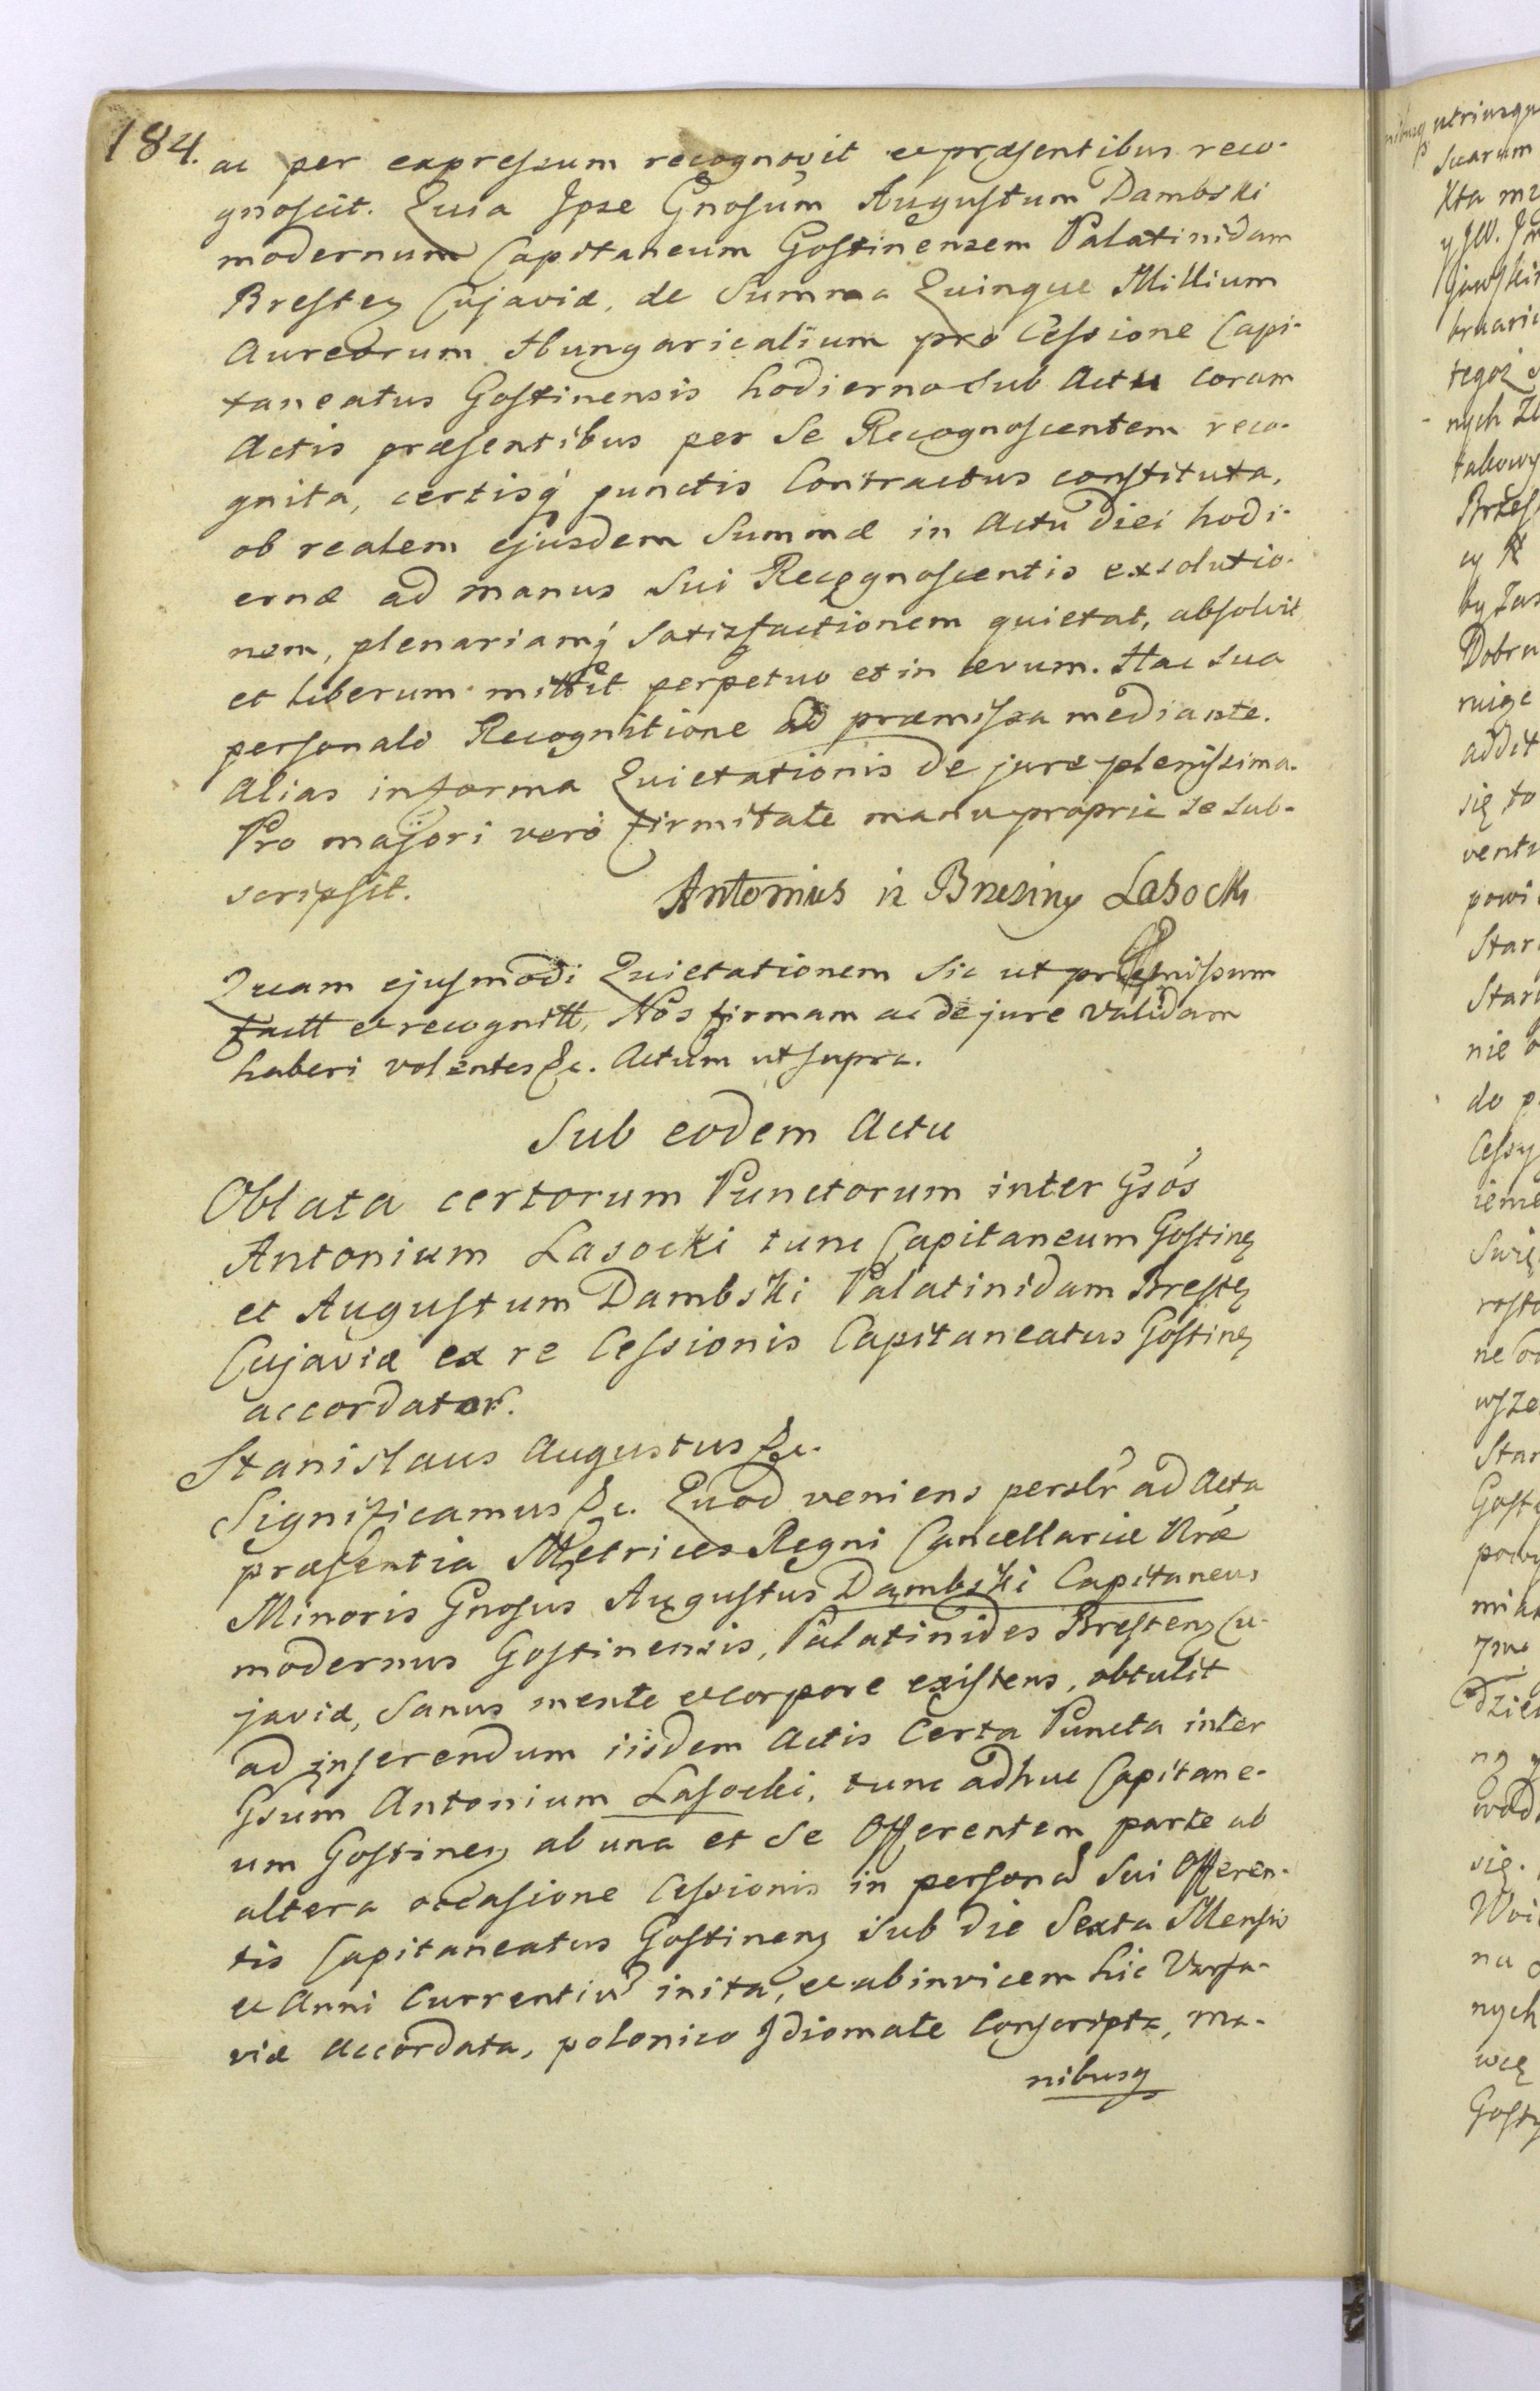 184.
ac per expressum recognovit et præsentibus reco-
gnoscit. Quia Ipse Gnosum Augustum Dambski
modernum Capitaneum Gostinensem Palatinidam
Bresten Cujaviæ, de Summa Quinque Millium
Aureorum Hungaricalium pro Cessione Capi-
taneatus Gostinensis hodierno sub Actu coram
Actis præsentibus per Se Recognoscentem reco-
gnita, certisq punctis Contractus constituta,
ob realem ejusdem Summæ in Actu diei hodi-
ernæ ad manus Sui Recognoscentis exsolutio-
nem, plenariamq satisfactionem quietat, absolvit
et liberum mittit perpetuo et in ævum. Hac sua
personali Recognitione ad præmissa mediante.
Alias in forma Quietationis de jure plenissima.
Pro majori vero firmitate manu propria se sub-
scripsit. Antonius iz Brzeziny Lasocki
Quam ejusmodi Quietationem sic ut præmissum
factt et recognitt, Nos firmam ac de jure validam
haberi volentes &c. Actum ut supra.
Sub eodem Actu
Oblata certorum Punctorum inter Gsos
Antonium Lasocki tunc Capitaneum Gostinen
et Augustum Dambski Palatinidam Bresten
Cujaviæ ex re Cessionis Capitaneatus Gostinen
accordator.
Stanislaus Augustus &c.
Significamus &c. Quod veniens perslr ad Acta
præsentia Metrices Regni Cancellariæ Nræ
Minoris Gnosus Augustus Dambski Capitaneus
modernus Gostinensis, Palatinides Bresten Cu-
javiæ, sanus mente et corpore existens, obtulit
ad inserendum iisdem Actis Certa Puncta inter
Gsum Antonium Lasocki, tunc adhuc Capitane-
um Gostinen ab una et Se Offerentem parte ab
altera occasione Cessionis in persona Sui Offeren-
tis Capitaneatus Gostinen sub die Sexta Mensis
et Anni Currentium inita, et ab invicem hic Varsa-
viæ accordata, polonico Idiomate Conscripta, ma-
nibusq
nibusq utriusq
suarum
tegoż
nych
Dobra
addit
się to
powi
Star
Star
nie
do
rosto
Star
się.
nych